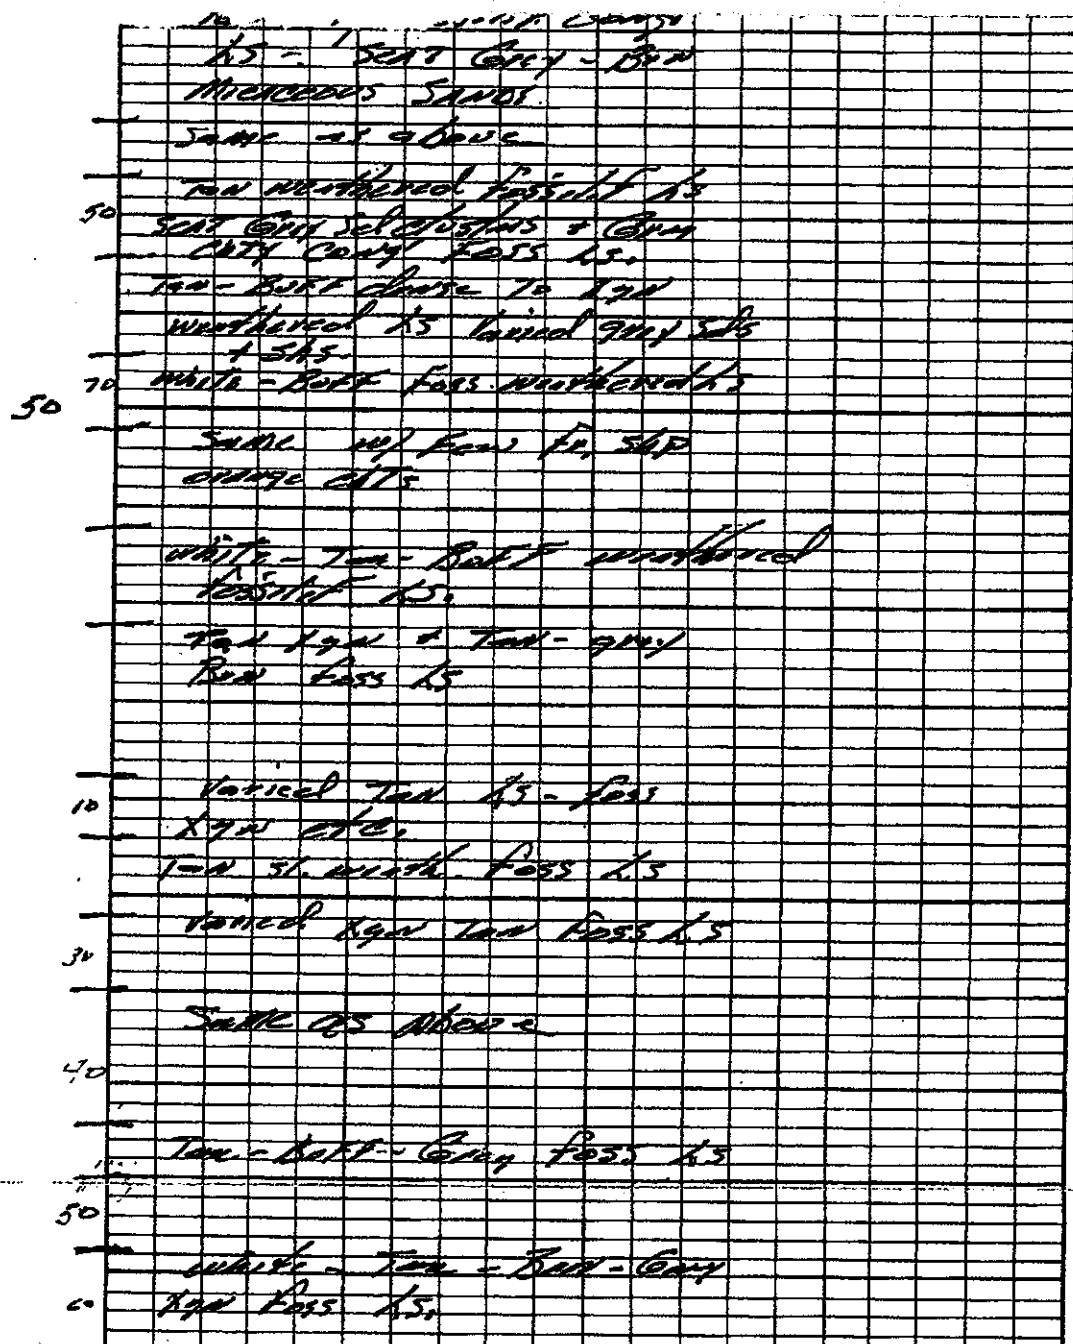 LS - SCAT Grey - BRN
MICACEOUS SANDS
Same as above
Tan weathered Fossilif LS
50
SCAT Grey + Grn
CHTY CONGL FOSS LS.
Tan - BUFF dense To Xgn
weathered LS Varied grey Sds
+ Shs
70 White - BUFF Foss. weathered LS
50
Same w/ Few Fr, Shp
orange CHTs
White - Tan - BUFF weathered
Fossilif LS.
Tan Xgn + Tan - grey
BRN Foss LS
Varied Tan LS - foss
10
Xgn etc.
Tan sl. weath. Foss LS
Varied Xgn Tan Foss LS
30
Same as Above
40
Tan - BUFF - Grey foss LS
50
White - Tan - BRN - Grey
60 Xgn Foss LS.